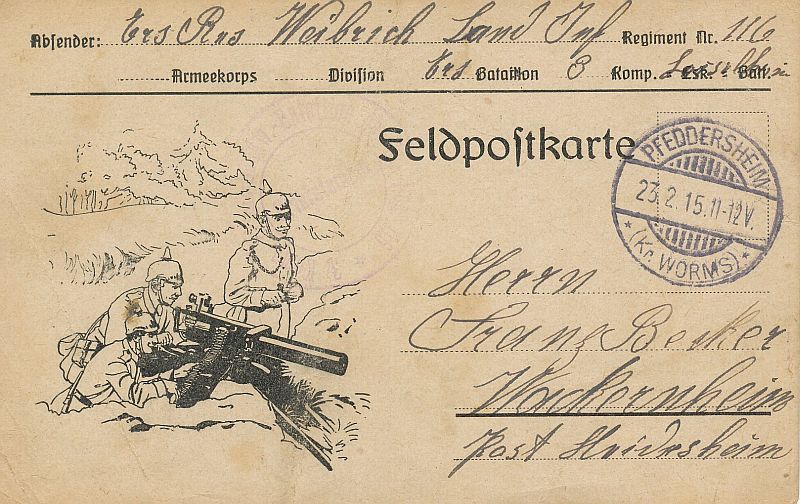 Absender: Ers Res Weibrich Land Inf Regiment Nr. 116
Armeekorps Division Ers Bataillon 3 Komp. Esk. Batt.
Feldpostkarte
PFEDDERSHEIM
23.2.15.11-12V.
* (Kr. WORMS) *
Herrn
Franz Becker
Wackernheim
Post Heidesheim